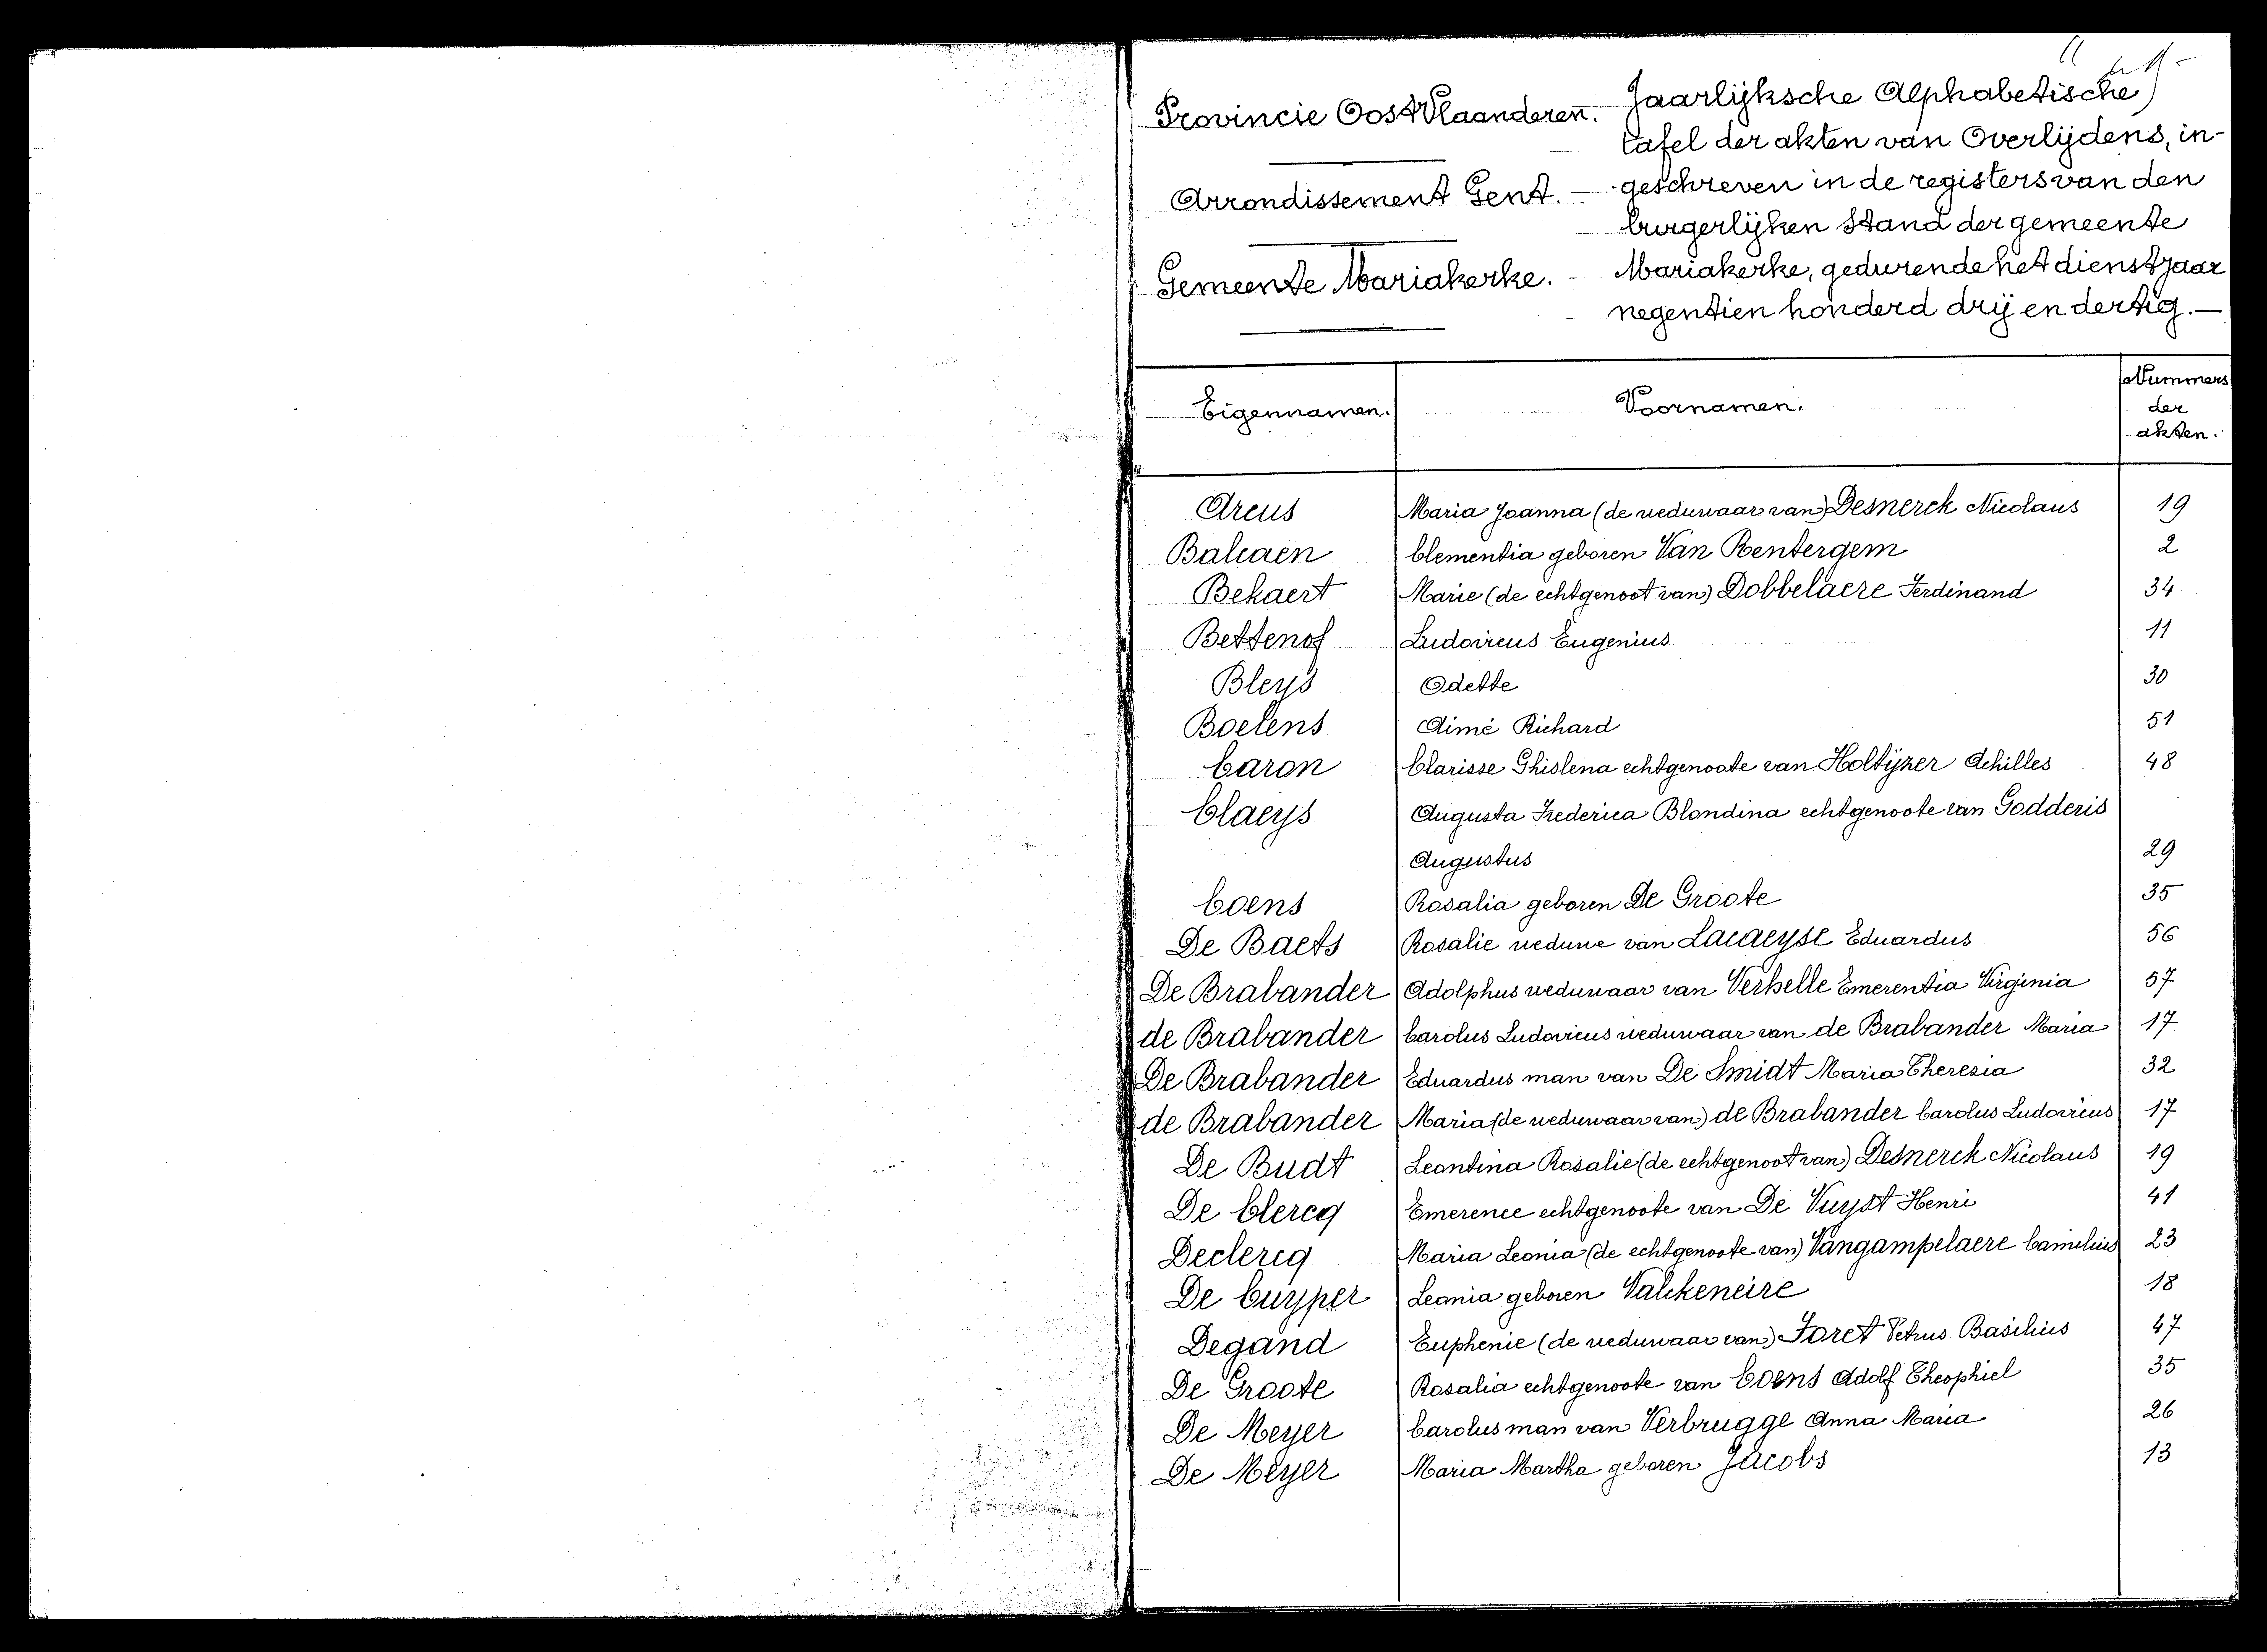 Provincie Oost Vlaanderen.
Arrondissement Gent. —
Gemeente Mariakerke. —
Jaarlijksche Alphabetische
tafel der akten van Overlijdens, in-
geschreven in de registers van den
burgerlijken Stand der gemeente
Mariakerke, gedurende het dienstjaar
negentien honderd drij en dertig. —
Eigennamen. Voornamen. Nummers
der
akten.
Arcus Maria Joanna (de weduwaar van) Desnerck Nicolaus 19
Balcaen Clementia geboren Van Rentergem 2
Bekaert Marie (de echtgenoot van) Dobbelaere Ferdinand 34
Bettenof Ludovicus Eugenius 11
Bleys Odette 30
Boelens Aimé Richard 51
Caron Clarisse Ghislena echtgenoote van Holtyzer Achilles 48
Claeys Augusta Frederica Blondina echtgenoote van Godderis
Augustus 29
Coens Rosalia geboren De Groote 35
De Baets Rosalie weduwe van Lacaeyse Eduardus 56
De Brabander Adolphus weduwaar van Verhelle Emerentia Virginia 57
de Brabander Carolus Ludovicus weduwaar van de Brabander Maria 17
De Brabander Eduardus man van De Smidt Maria Theresia 32
de Brabander Maria (de weduwaar van) de Brabander Carolus Ludovicus 17
De Budt Leontina Rosalie (de echtgenoot van) Desnerck Nicolaus 19
De Clercq Emerence echtgenoote van De Vuyst Henri 41
Declercq Maria Leonia (de echtgenoote van) Vangampelaere Camilius 23
De Cuyper Leonia geboren Valckeneire 18
Degand Euphenie (de weduwaar van) Foret Petrus Basilius 47
De Groote Rosalia echtgenoote van Coens Adolf Theophiel 35
De Meyer Carolus man van Verbrugge Anna Maria 26
De Meyer Maria Martha geboren Jacobs 13